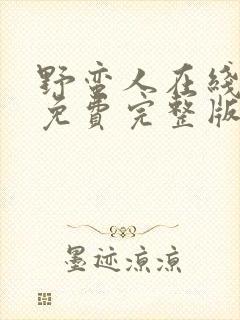 野蛮人在线
免費完整版
墨迹凉凉